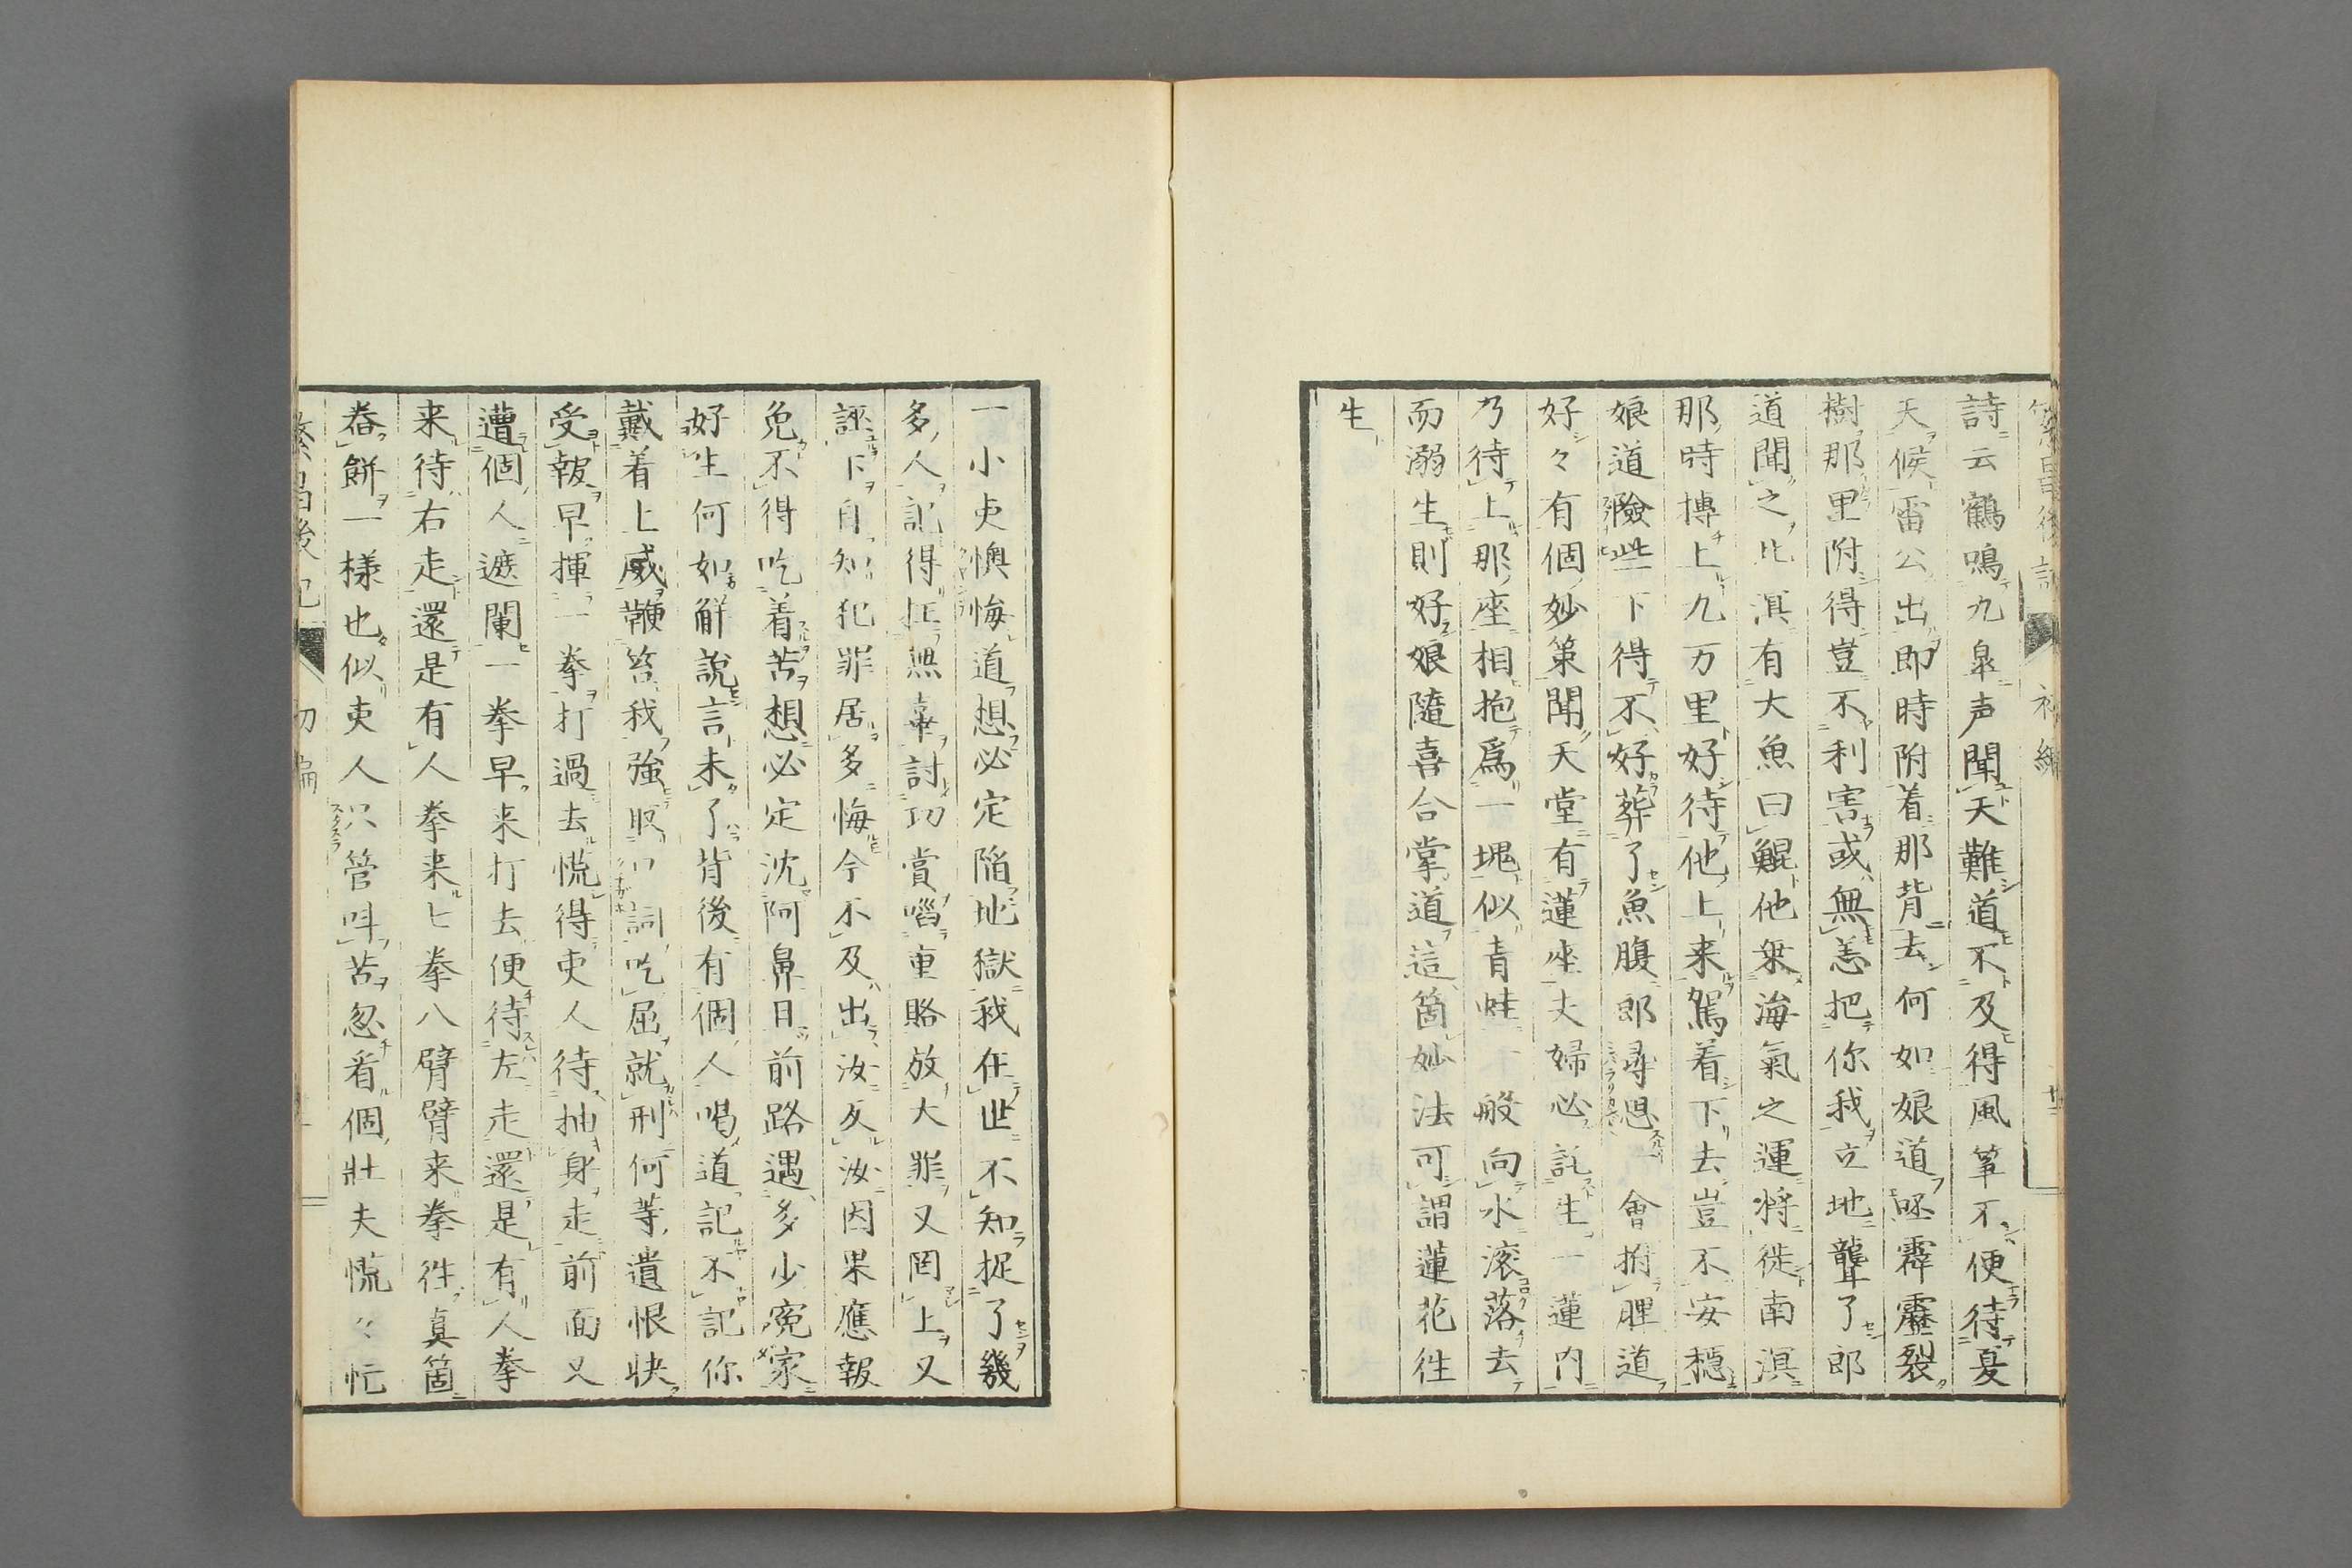 詩云鶴鳴九皐声聞天難道不及得風箏不便待夏
天候雷公出即時附着那背去何如娘道恐霹靂裂
樹那里附得豈不利害或無恙把你我立地聾了郎
道聞之北溟有大魚曰鯤他乗海氣之運将徙南溟
那時摶上九万里好待他上来駕着下去豈不安穏
娘道險些下得不好葬了魚腹郎尋思一會拊髀道
好々有個妙策聞天堂有蓮座夫婦必託生一蓮内
乃待上那座相抱爲一塊似青蛙一般向水滚落去
而溺生則好娘隨喜合掌道這箇妙法可謂蓮花徃
生
一小吏懊悔道想必定陥地獄我在世不知捉了幾
多人記得抂無辜討功賞啗重賂放大罪又罔上又
誣下自知犯罪居多悔今不及出汝反汝因果應報
免不得吃着苦想必定沈阿鼻日前路遇多少寃家
好生何如觧說言未了背後有個人喝道記不記你
戴着上威鞭笞我強取口詞吃屈就刑何等遺恨快
受報早揮一拳打過去慌得吏人待抽身走前面又
遭個人遮闌一拳早来打去便待左走還是有人拳
来待右走還是有人拳来七拳八臂臂来拳徃真箇
舂餅一樣也似吏人只管呌苦忽看個壯夫慌々忙
繁昌後記 初編